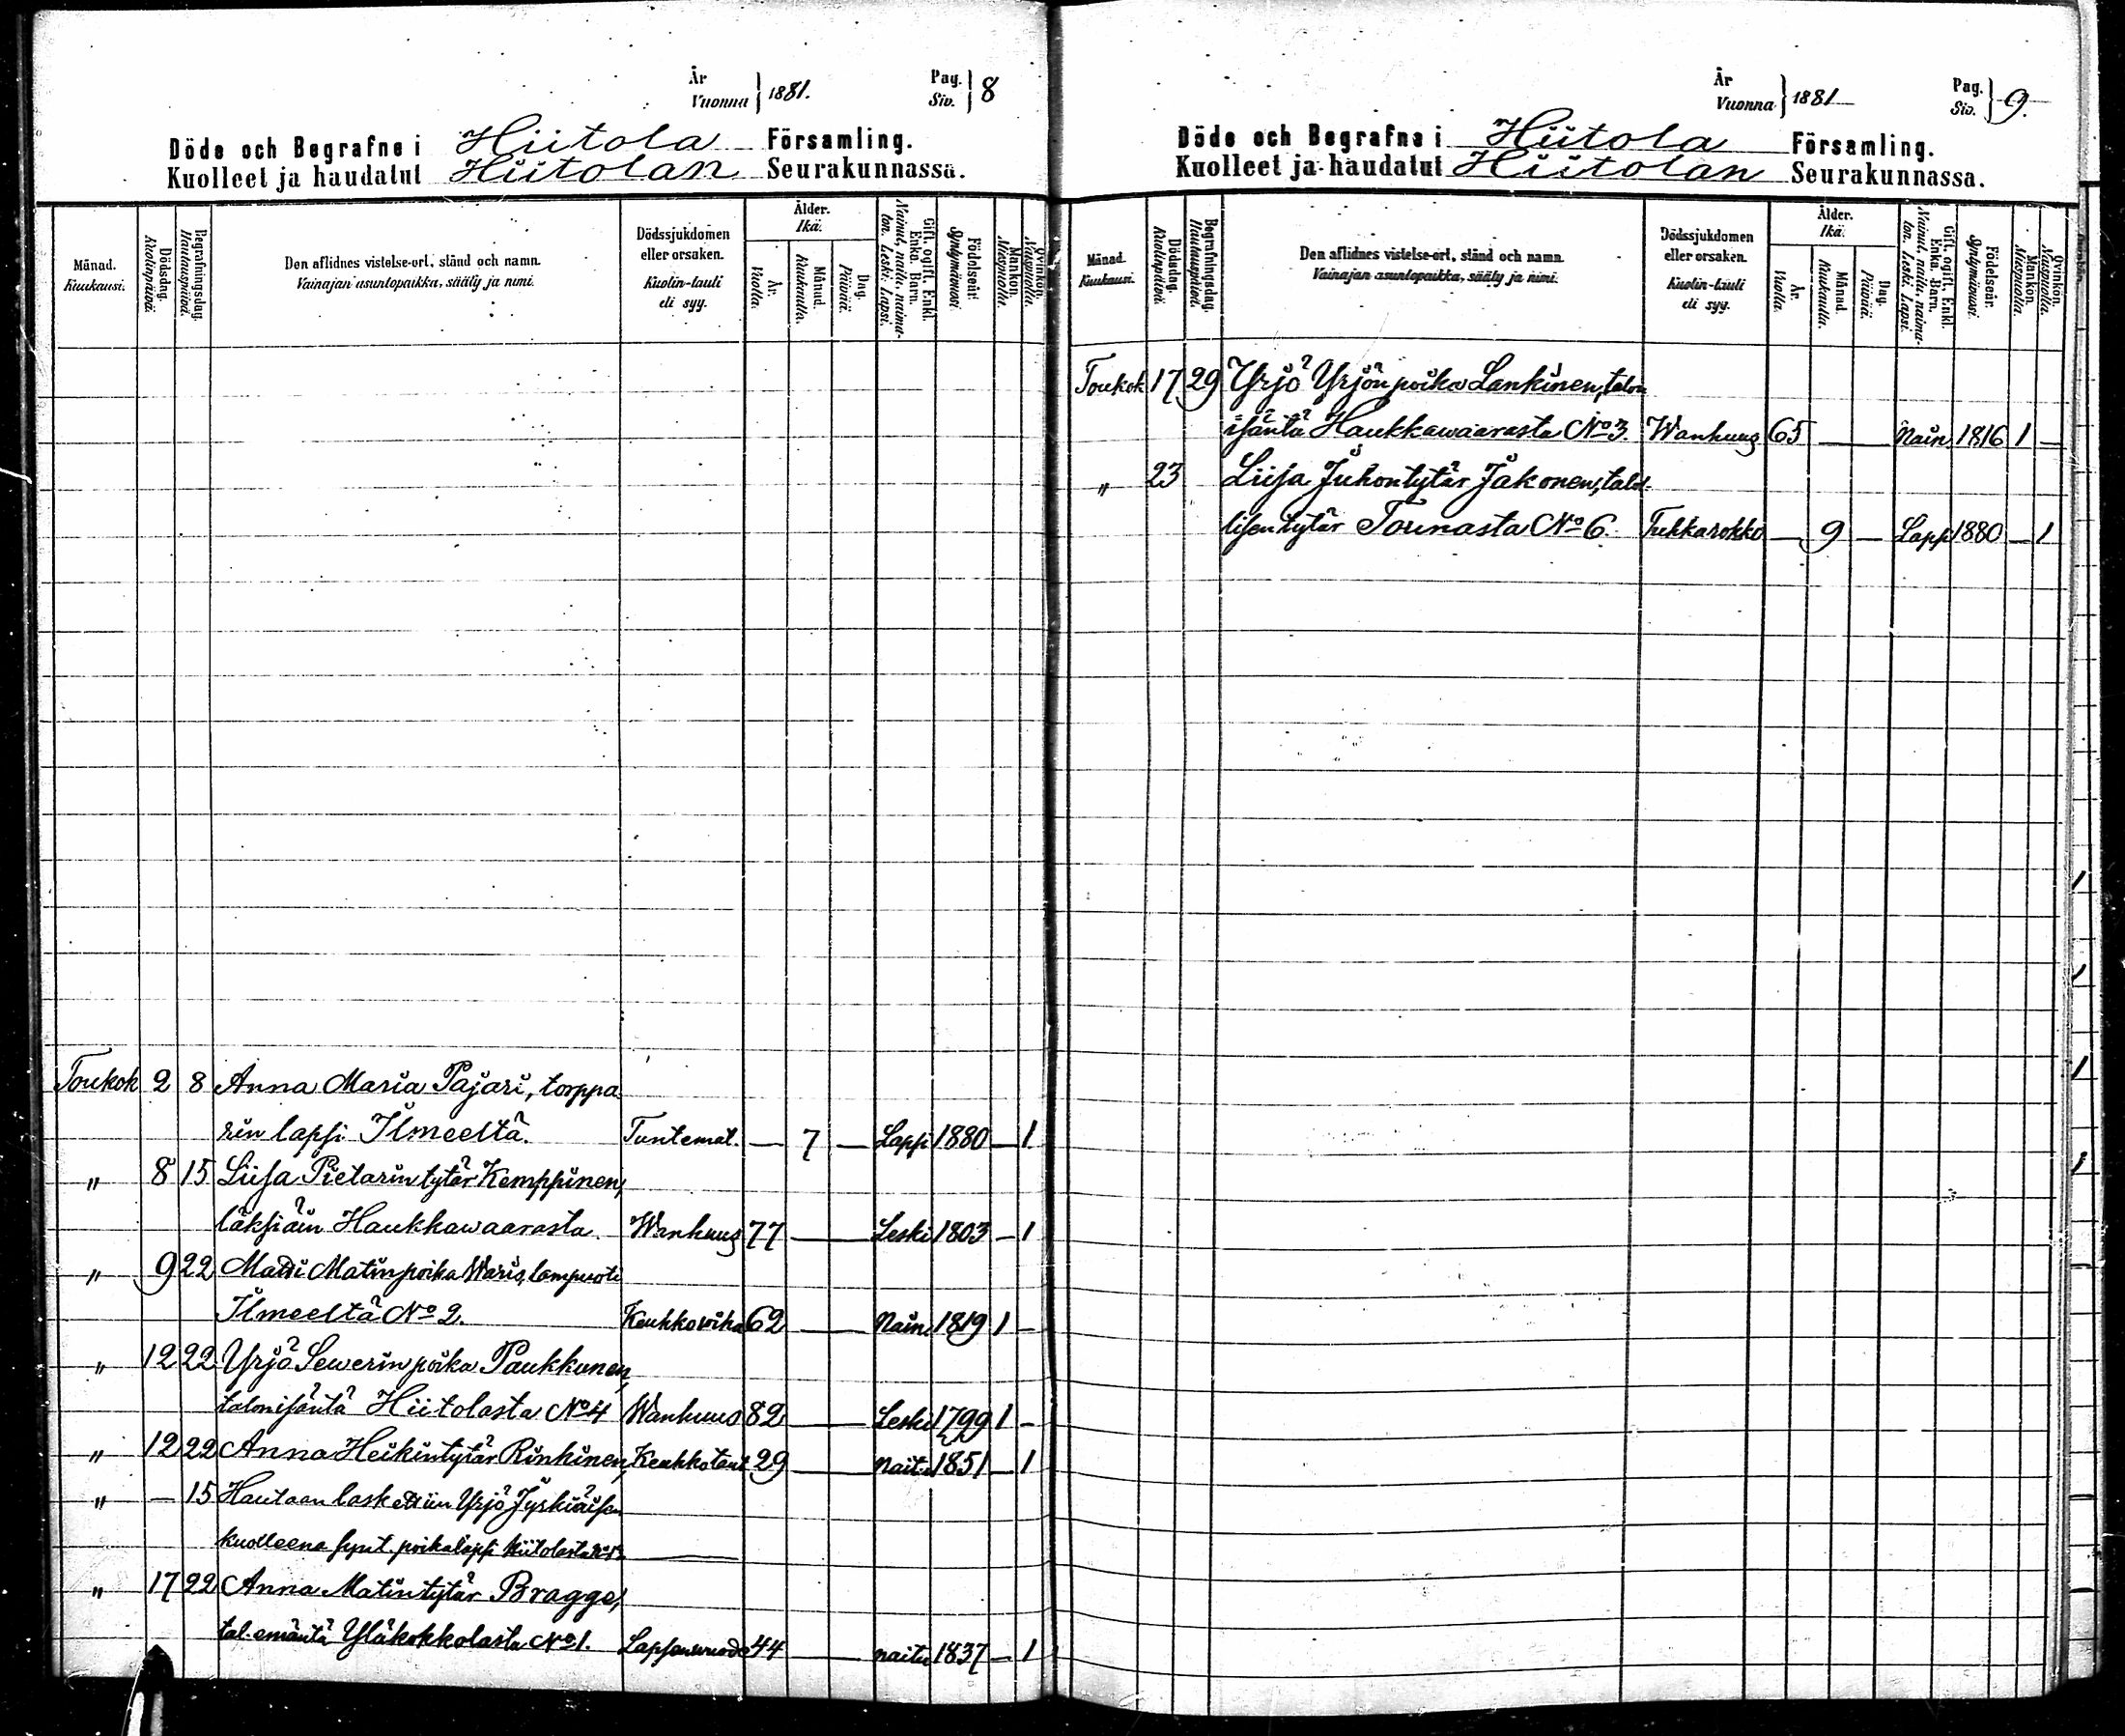 År
Vuonna 1881.
Pag.
Siv. 8
Döde och Begrafne i Hiitola Församling.
Kuolleet ja haudatut Hiitolan Seurakunnassa.
Månad. Kuukausi.
Dödsdag. Kuolinpäivä.
Begrafningsdag. Hautauspäivä.
Den aflidnes vistelse-ort, stånd och namn.
Vainajan asuntopaikka, sääty ja nimi.
Dödssjukdomen eller orsaken.
Kuolin-tauti eli syy.
Ålder. Ikä.
År. Vuotta.
Månad. Kuukautta.
Dag. Päivää.
Gift, ogift, Enkl. Enka. Barn.
Nainut, naitu, naimaton. Leski. Lapsi.
Födelseår. Syntymävuosi.
Mankön. Miespuolta.
Qvinkön. Vaimopuolta.
Toukok 2 8 Anna Maria Pajari, torppa
rin lapsi Ilmeeltä. Tuntemat. — 7 — Lapsi 1880 — 1
" 8 15 Liisa Pietarintytär Kemppinen,
läksiäin Haukkawaarasta. Wanhuus 77 — Leski 1803 — 1
" 9 22 Matti Matinpoika Waris, lampuoti
Ilmeeltä No 2. Keuhkowiha 62 — Nain. 1819 1 —
" 12 22 Yrjö Sewerinpoika Paukkunen,
talonisäntä Hiitolasta No 4 Wanhuus 82 — Leski 1799 1 —
" 12 22 Anna Heikintytär Rinkinen, Keuhkotaut 29 — Nait. 1851 — 1
" — 15 Hautaan laskettiin Yrjö Jyrkiäisen
kuolleena synt. poikalapsi Hiitolasta —
" 17 22 Anna Matintytär Bragge,
tal. emäntä Yläkokkolasta No 1. Lapsenvuode 44 — naitu 1837 — 1
År
Vuonna 1881
Pag.
Siv. 9.
Döde och Begrafne i Hiitola Församling.
Kuolleet ja haudatut Hiitolan Seurakunnassa.
Månad. Kuukausi.
Dödsdag. Kuolinpäivä.
Begrafningsdag. Hautauspäivä.
Den aflidnes vistelse-ort, stånd och namn.
Vainajan asuntopaikka, sääty ja nimi.
Dödssjukdomen eller orsaken.
Kuolin-tauti eli syy.
Ålder. Ikä.
År. Vuotta.
Månad. Kuukautta.
Dag. Päivää.
Gift, ogift, Enkl. Enka. Barn.
Nainut, naitu, naimaton. Leski. Lapsi.
Födelseår. Syntymävuosi.
Mankön. Miespuolta.
Qvinkön. Vaimopuolta.
Toukok 17 29 Yrjö Yrjönpoika Lankinen, talon
isäntä Haukkawaarasta No 3. Wanhuus 65 — Nain. 1816 1 —
" 23 Liisa Juhontytär Jakonen, talol
lisen tytär Tounasta No 6. Tuhkarokko — 9 — Lapsi 1880 — 1